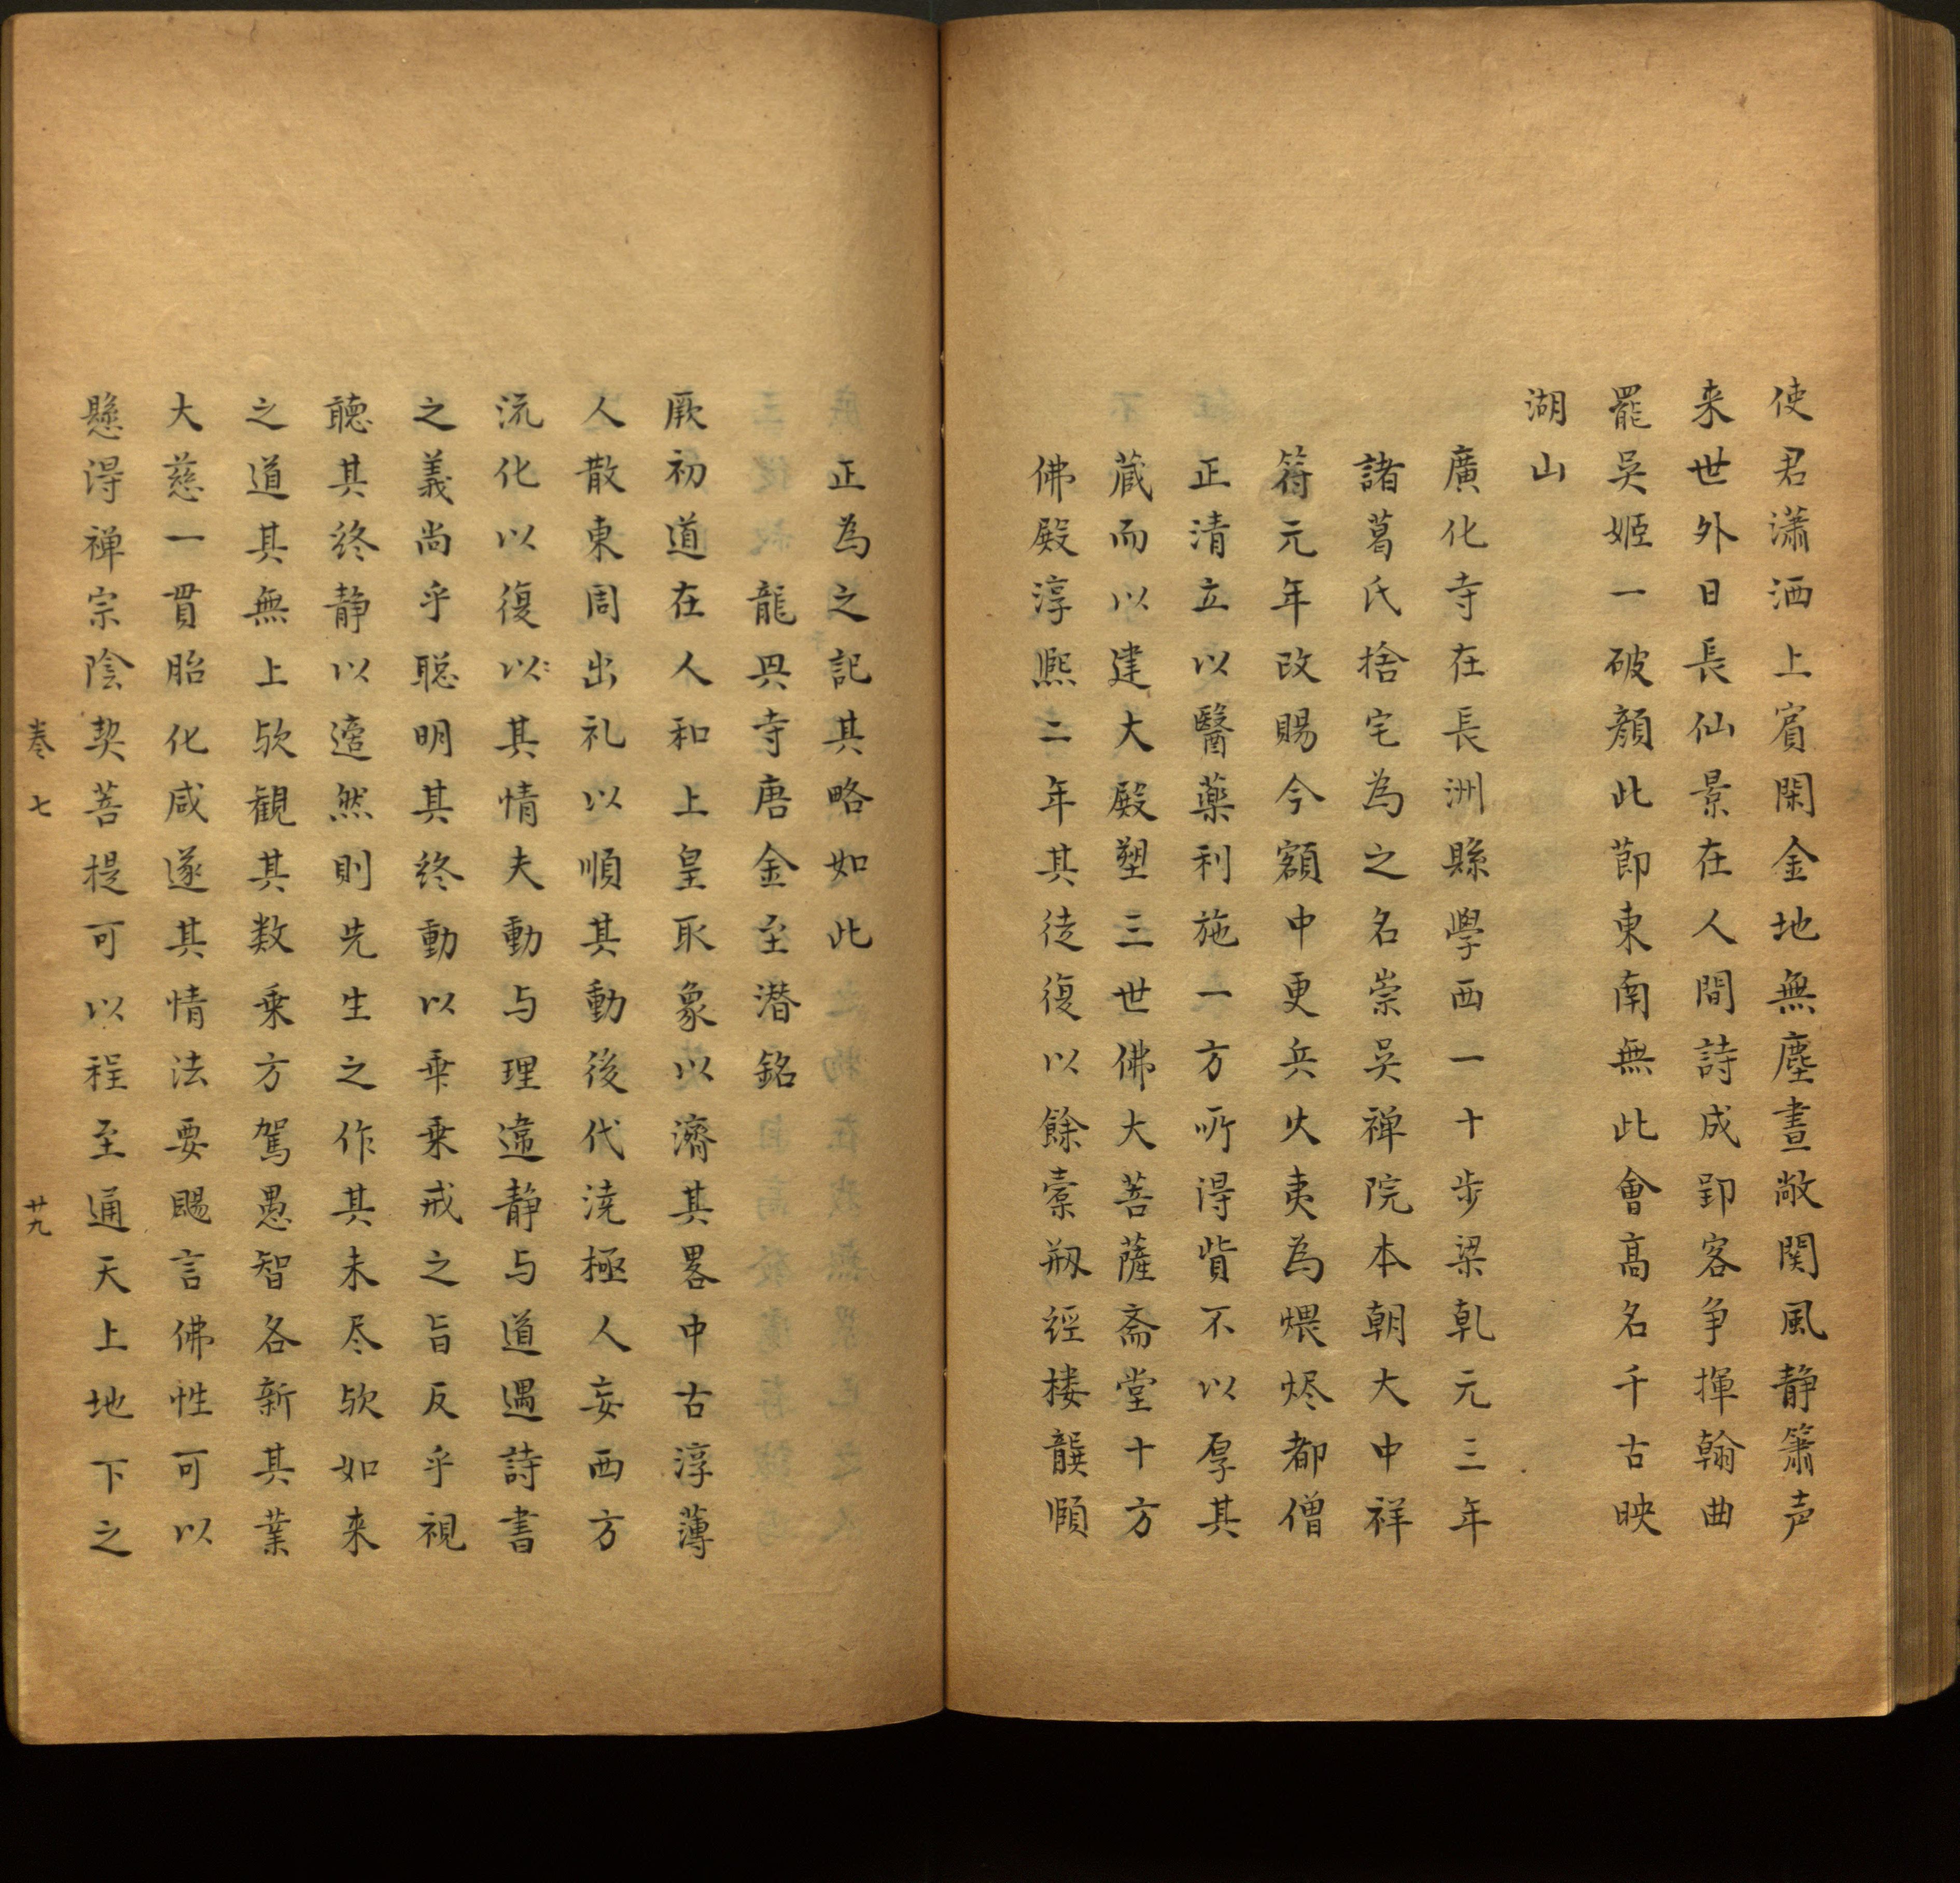 使君瀟洒上賔閑金地無塵晝敞関風静簫声
来世外日長仙景在人間詩成郢客争揮翰曲
罷吳姬一破顔此莭東南無此會髙名千古映
湖山
廣化寺在長洲縣學西一十步梁乹元三年
諸葛氏捨宅為之名崇吳禅院本朝大中祥
符元年改賜今額中更兵火夷為煨烬都僧
正清立以醫藥利施一方所得貲不以厚其
蔵而以建大殿塑三世佛大菩薩斋堂十方
佛殿淳熈二年其徒復以餘橐剏經楼龔頤
正為之記其略如此
龍興寺唐金至潜銘
厥初道在人和上皇取象以濟其畧中古淳薄
人散東周出礼以順其動後代澆極人妄西方
流化以復以其情夫動与理違静与道遇詩書
之義尚乎聡明其终動以乗乗戒之旨反乎視
聴其终静以邉然則先生之作其未尽欤如来
之道其無上欤観其数乗方駕愚智各新其業
大慈一貫胎化咸遂其情法要賜言佛性可以
懸淂禅宗陰契菩提可以程至通天上地下之
卷七 廿九